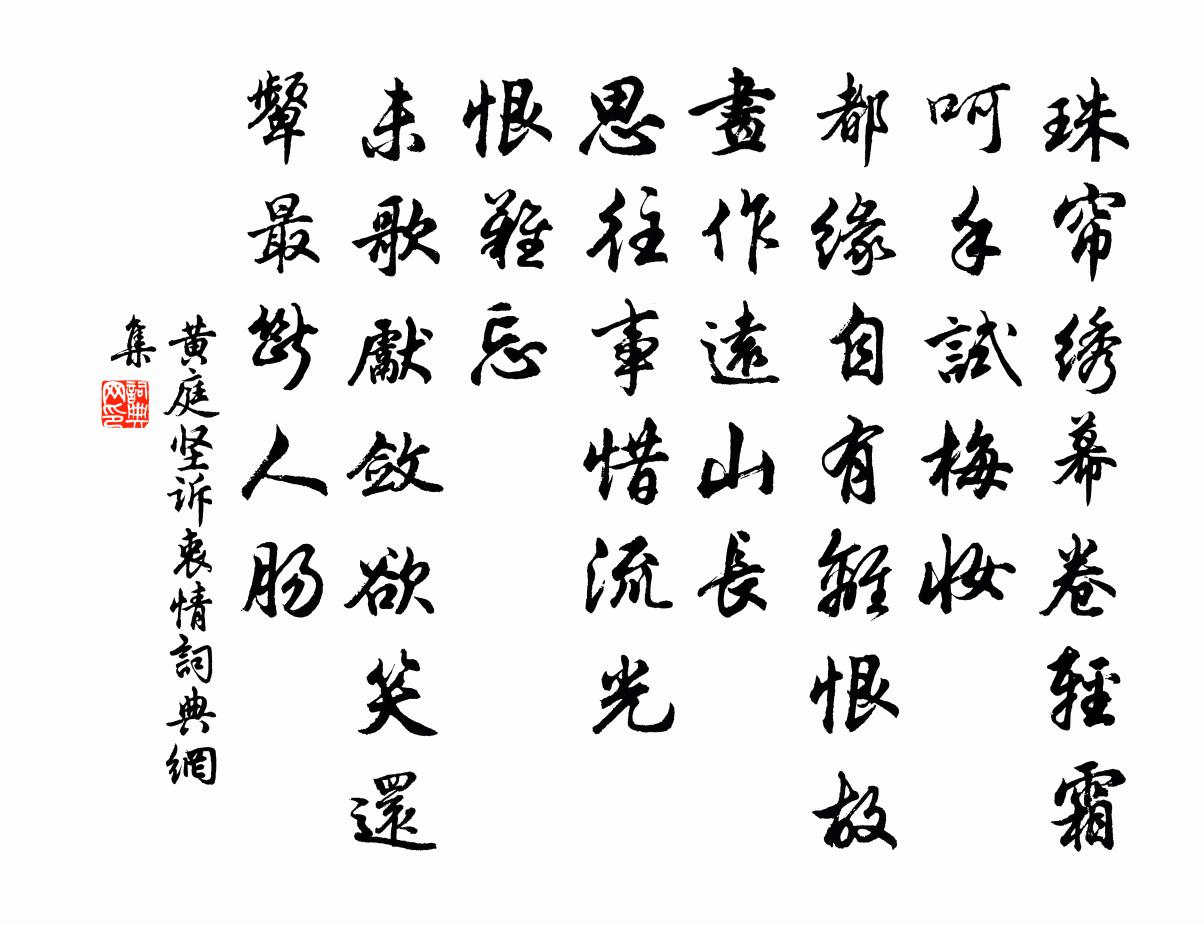 珠帘绣幕卷輕霜
呵手試梅妆
都缘自有離恨故
畫作遠山長
思往事惜流光
恨難忘
未歌先斂欲笑還
顰最斷人肠
黄庭坚诉衷情詞典網
集
詞典网印